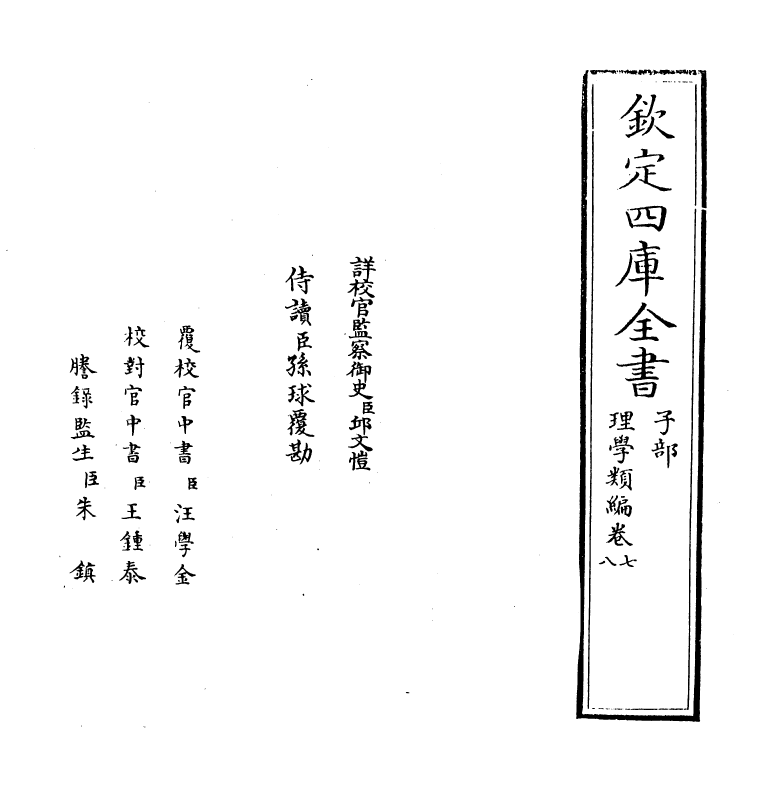 欽定四庫全書
子部
理學類編卷七八
詳校官監察御史臣邱文愷
侍讀臣孫球覆勘
覆校官中書臣汪學金
校對官中書臣王鍾泰
謄錄監生臣朱鎮